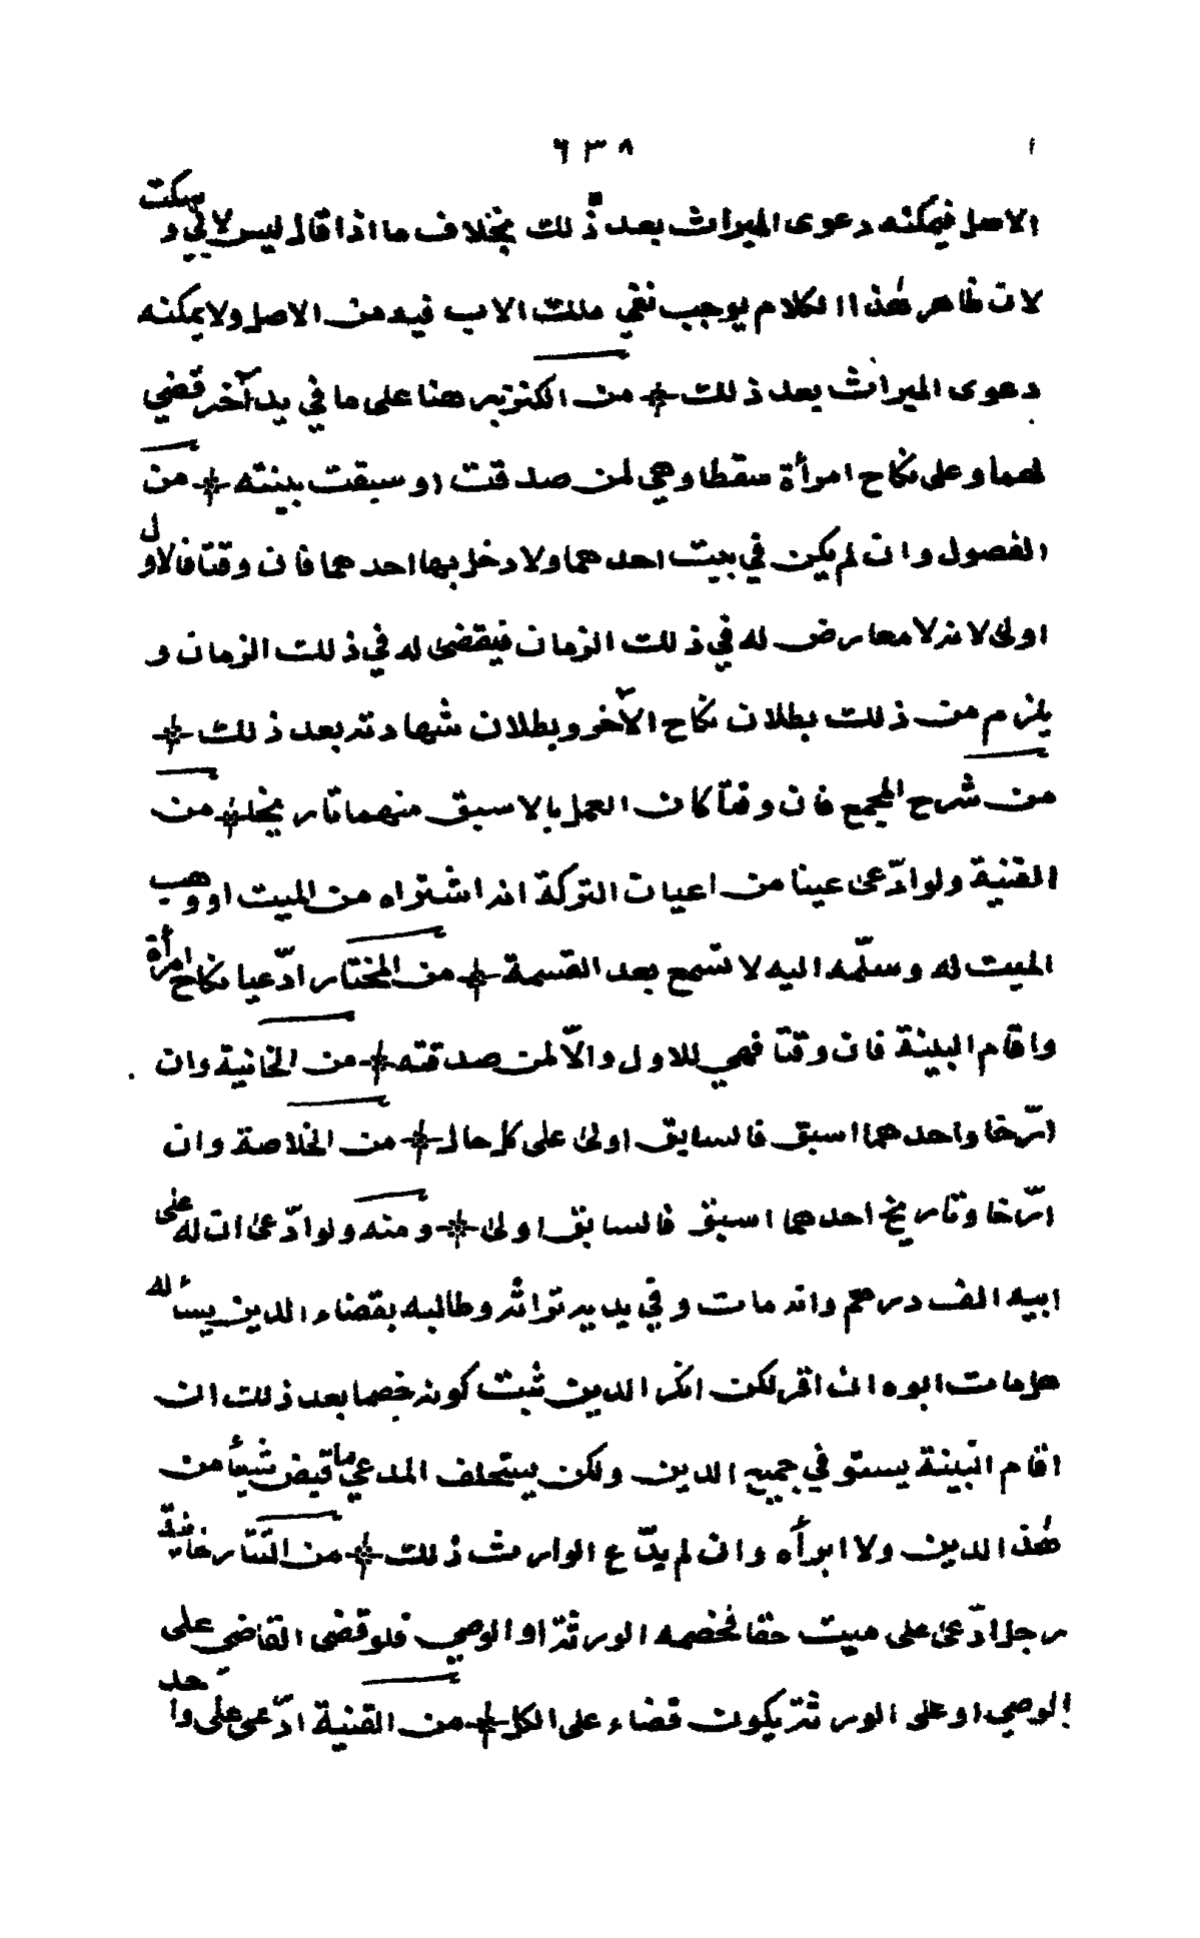 ٦٣٨
الاصل فيمكنه دعوى الميراث بعد ذلك بخلاف ما اذا قال ليس لابي و سكت
لان ظاهر هٰذا الكلام يوجب نفي ملك الاب فيه من الاصل ولا يمكنه
دعوى الميراث بعد ذلك من الكنز برهنا على ما في يد آخر قضي
لهما وعلى نكاح امرأة سقطا وهي لمن صدقت او سبقت بينته من
الفصول وان لم يكن في بيت احدهما ولا دخل بها احدهما فان وقتا فالاول
اولى لانه لا معارض له في ذلك الزمان فيقضى له في ذلك الزمان و
يلزم من ذلك بطلان نكاح الآخر وبطلان شهادته بعد ذلك
من شرح المجمع فان وقتا كان العمل بالاسبق منهما تاريخا من
القنية ولو ادّعى عينا من اعيان التركة انه اشتراه من الميت او وهب
الميت له وسلّمه اليه لا تسمع بعد القسمة من المختار ادّعيا نكاح امرأة
واقام البينة فان وقتا فهي للاول والّا لمن صدقته من الخانية وان
ارّخا واحدهما اسبق فالسابق اولى على كل حال من الخلاصة وان
ارّخا وتاريخ احدهما اسبق فالسابق اولى ومنه ولو ادّعى ان له على
ابيه الف درهم وانه مات وفي يديه تراثه وطالبه بقضاء الدين يسأله
هل مات ابوه ان اقر لكن انكر الدين ثبت كونه خصما بعد ذلك ان
اقام البينة يستوفي جميع الدين ولكن يستحلف المدعي ما قبض شيئا من
هٰذا الدين ولا ابرأه وان لم يدّع الوارث ذلك من التتارخانية
رجل ادّعى على ميت حقا فخصمه الورثة او الوصي فلو قضى القاضي على
الوصي او على الورثة يكون قضاء على الكل من القنية ادّعى على واحد